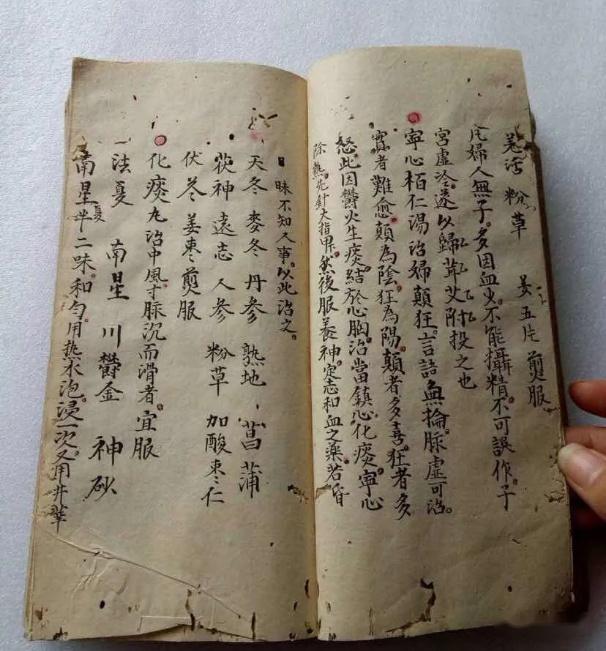 羌活 粉草 姜五片煎服
凡婦人無子多因血少不能攝精不可誤作子
宮虛冷遂以歸茸艾附投之也
寧心栢仁湯治婦顛狂言語無掄脉虛可治
實者難愈顛為陰狂為陽顛者多喜狂者多
怒此因鬱火生痰結於心胸治當鎮心化痰寧心
除熱先針大指甲然後服養神定志和血之藥若昏
昧不知人事以此治之
天冬 麥冬 丹參 熟地 菖蒲
茯神 遠志 人參 粉草 加酸棗仁
伏苓 姜棗煎服
化痰丸治中風寸脉沉而滑者宜服
法夏 南星 川鬱金 神砂
南星半夏二味和勻用熱水泡浸一次又用井